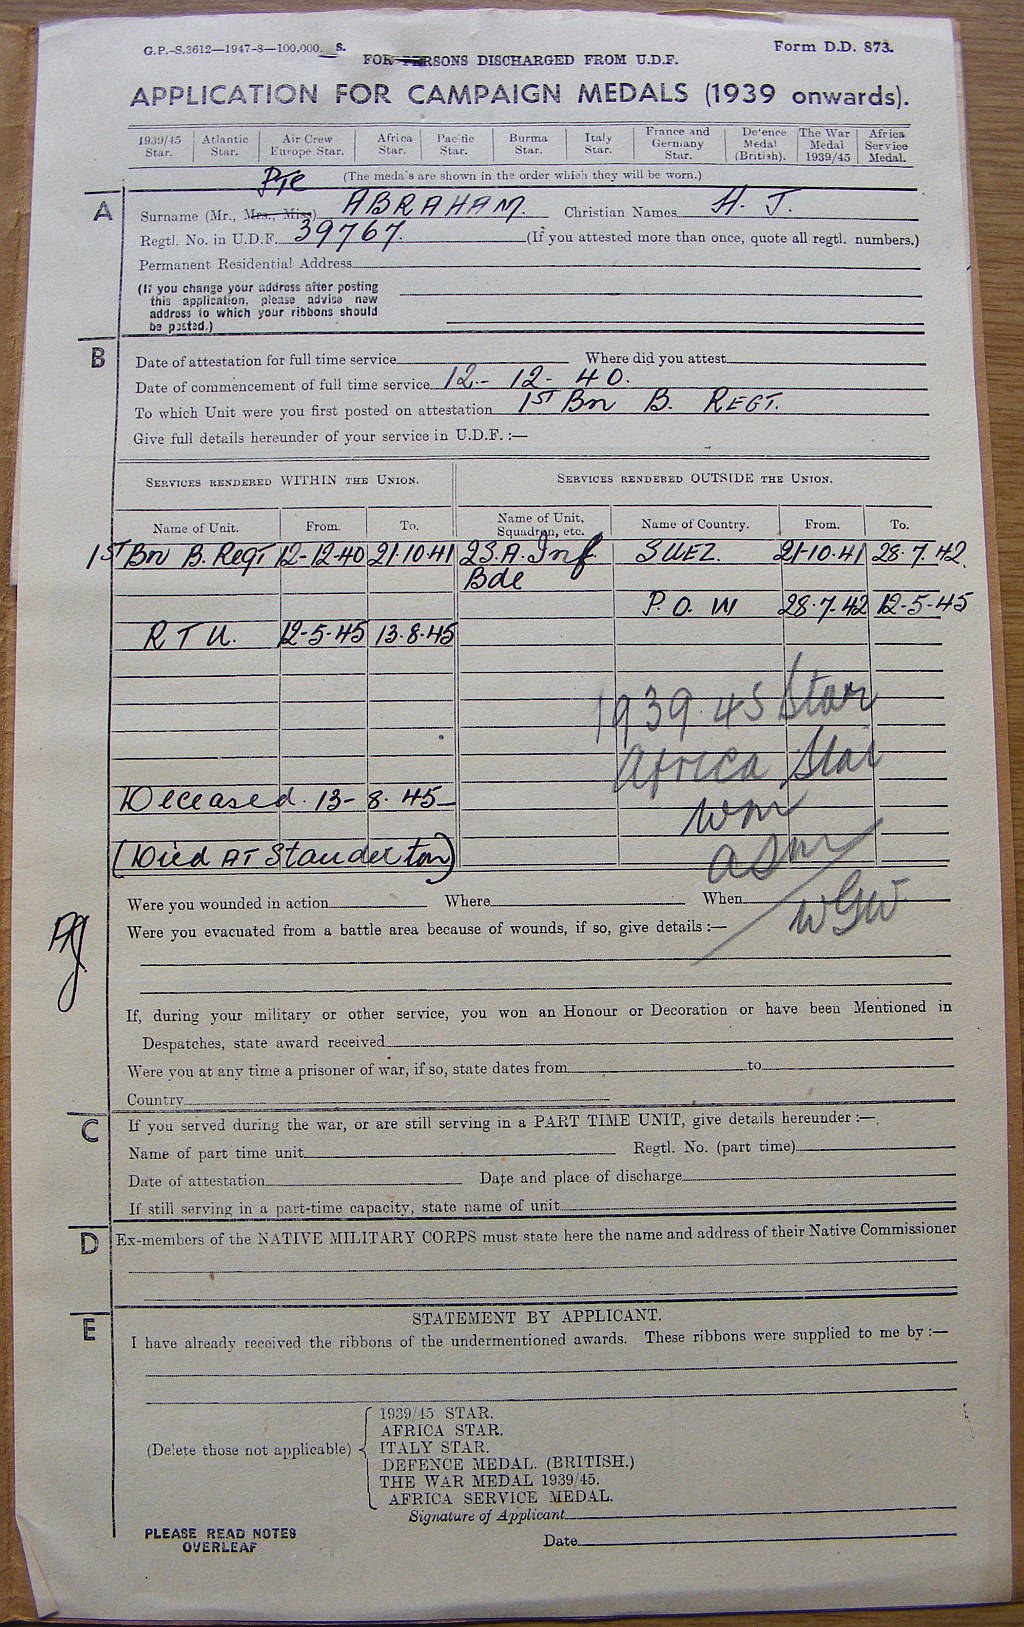 G.P.-S.3612—1947-8—100,000. S.
Form D.D. 873.
FOR PERSONS DISCHARGED FROM U.D.F.
APPLICATION FOR CAMPAIGN MEDALS (1939 onwards).
1939/45 Star. Atlantic Star. Air Crew Europe Star. Africa Star. Pacific Star. Burma Star. Italy Star. France and Germany Star. Defence Medal (British). The War Medal 1939/45 Africa Service Medal.
(The medals are shown in the order which they will be worn.)
Pte
A
Surname (Mr., Mrs., Miss) ABRAHAM. Christian Names H. J.
Regtl. No. in U.D.F. 39767. (If you attested more than once, quote all regtl. numbers.)
Permanent Residential Address
(If you change your address after posting
this application, please advise new
address to which your ribbons should
be posted.)
B
Date of attestation for full time service Where did you attest
Date of commencement of full time service 12-12-40.
To which Unit were you first posted on attestation 1ST Bn B. REGT.
Give full details hereunder of your service in U.D.F. :—
SERVICES RENDERED WITHIN THE UNION. SERVICES RENDERED OUTSIDE THE UNION.
Name of Unit. From. To. Name of Unit, Squadron, etc. Name of Country. From. To.
1ST Bn B. Regt 12-12-40 21.10.41 2 S.A. Inf SUEZ. 21-10-41 28.7.42.
Bde
P.O.W 28.7.42 12-5-45
R T U. 12-5-45 13.8.45
1939.45 Star
Africa Star
Deceased. 13-8.45
wm
(Died AT Standerton)
asm
Were you wounded in action Where When
wGw
Were you evacuated from a battle area because of wounds, if so, give details :—
If, during your military or other service, you won an Honour or Decoration or have been Mentioned in
Despatches, state award received
Were you at any time a prisoner of war, if so, state dates from to
Country
C
If you served during the war, or are still serving in a PART TIME UNIT, give details hereunder :—
Name of part time unit Regtl. No. (part time)
Date of attestation Date and place of discharge
If still serving in a part-time capacity, state name of unit
D
Ex-members of the NATIVE MILITARY CORPS must state here the name and address of their Native Commissioner
E
STATEMENT BY APPLICANT.
I have already received the ribbons of the undermentioned awards. These ribbons were supplied to me by :—
(Delete those not applicable)
1939/45 STAR.
AFRICA STAR.
ITALY STAR.
DEFENCE MEDAL. (BRITISH.)
THE WAR MEDAL 1939/45.
AFRICA SERVICE MEDAL.
Signature of Applicant
PLEASE READ NOTES
OVERLEAF
Date